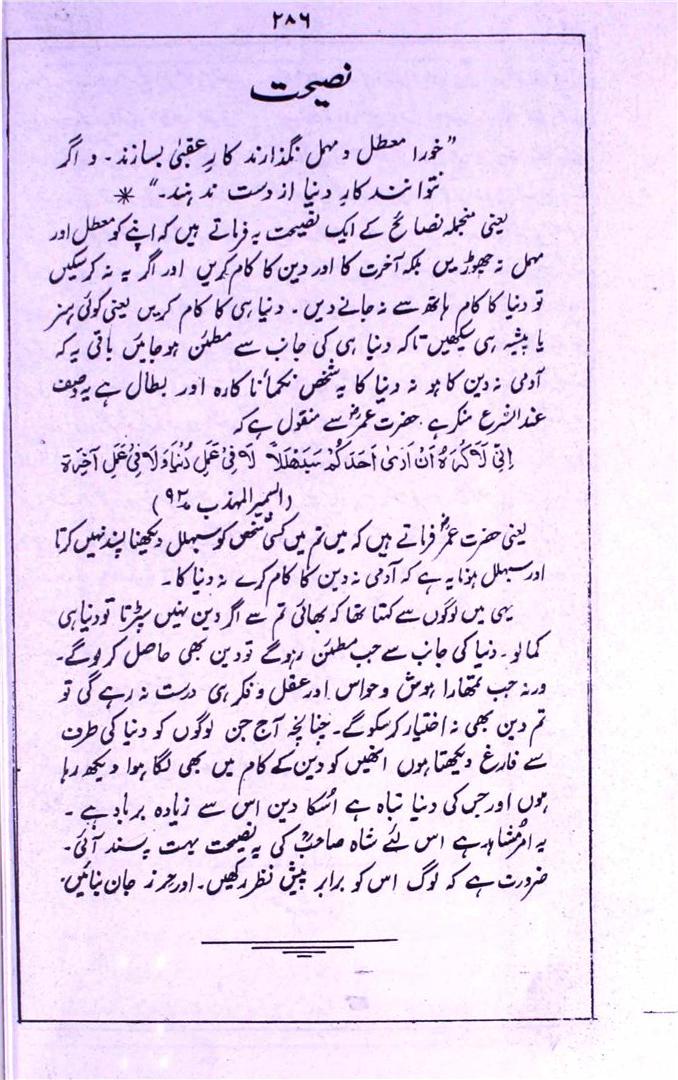 ۲۸۶
نصیحت
"خودرا معطل و مہمل نگذارند کارِ عقبیٰ بسازند۔ و اگر
نتوانند کارِ دنیا از دست ند ہند۔" *
یعنی منجملہ نصائح کے ایک نصیحت یہ فرماتے ہیں کہ اپنے کو معطل اور
مہمل نہ چھوڑیں بلکہ آخرت کا اور دین کا کام کریں اور اگر یہ نہ کرسکیں
تو دنیا کا کام ہاتھ سے نہ جانے دیں۔ دنیا ہی کا کام کریں یعنی کوئی ہنر
یا پیشہ ہی سیکھیں تاکہ دنیا ہی کی جانب سے مطمئن ہوجائیں باقی یہ کہ
آدمی نہ دین کا ہو نہ دنیا کا یہ شخص نکما ناکارہ اور بطال ہے یہ وصف
عندالشرع منکر ہے۔ حضرت عمرؓ سے منقول ہے کہ
اِنِّی لَاَکْرَہُ اَنْ اَدٰی اَحَدَکُمْ سَبَھْلَلاً لَا فِیْ عَمَلِ دُنْیَا وَلَا فِیْ عَمَلِ آخِرَۃ
(السمیر المہذب ۹۲)
یعنی حضرت عمرؓ فرماتے ہیں کہ میں تم میں کسی شخص کو سبہلل دیکھنا پسند نہیں کرتا
اور سبہلل ہونا یہ ہے کہ آدمی نہ دین کا کام کرے نہ دنیا کا۔
یہی میں لوگوں سے کہتا تھا کہ بھائی تم سے اگر دین نہیں سپڑتا تو دنیا ہی
کمالو۔ دنیا کی جانب سے جب مطمئن رہوگے تو دین بھی حاصل کرلوگے۔
ورنہ جب تمھارا ہوش و حواس اور عقل و فکر ہی درست نہ رہے گی تو
تم دین بھی نہ اختیار کرسکوگے۔ چنانچہ آج جن لوگوں کو دنیا کی طرف
سے فارغ دیکھتا ہوں انھیں کو دین کے کام میں بھی لگا ہوا دیکھ رہا
ہوں اور جس کی دنیا تباہ ہے اُسکا دین اس سے زیادہ برباد ہے۔
یہ امر مُشاہد ہے اس لئے شاہ صاحبؒ کی یہ نصیحت بہت پسند آئی۔
ضرورت ہے کہ لوگ اس کو برابر پیش نظر رکھیں۔ اور حرز جان بنائیں۔